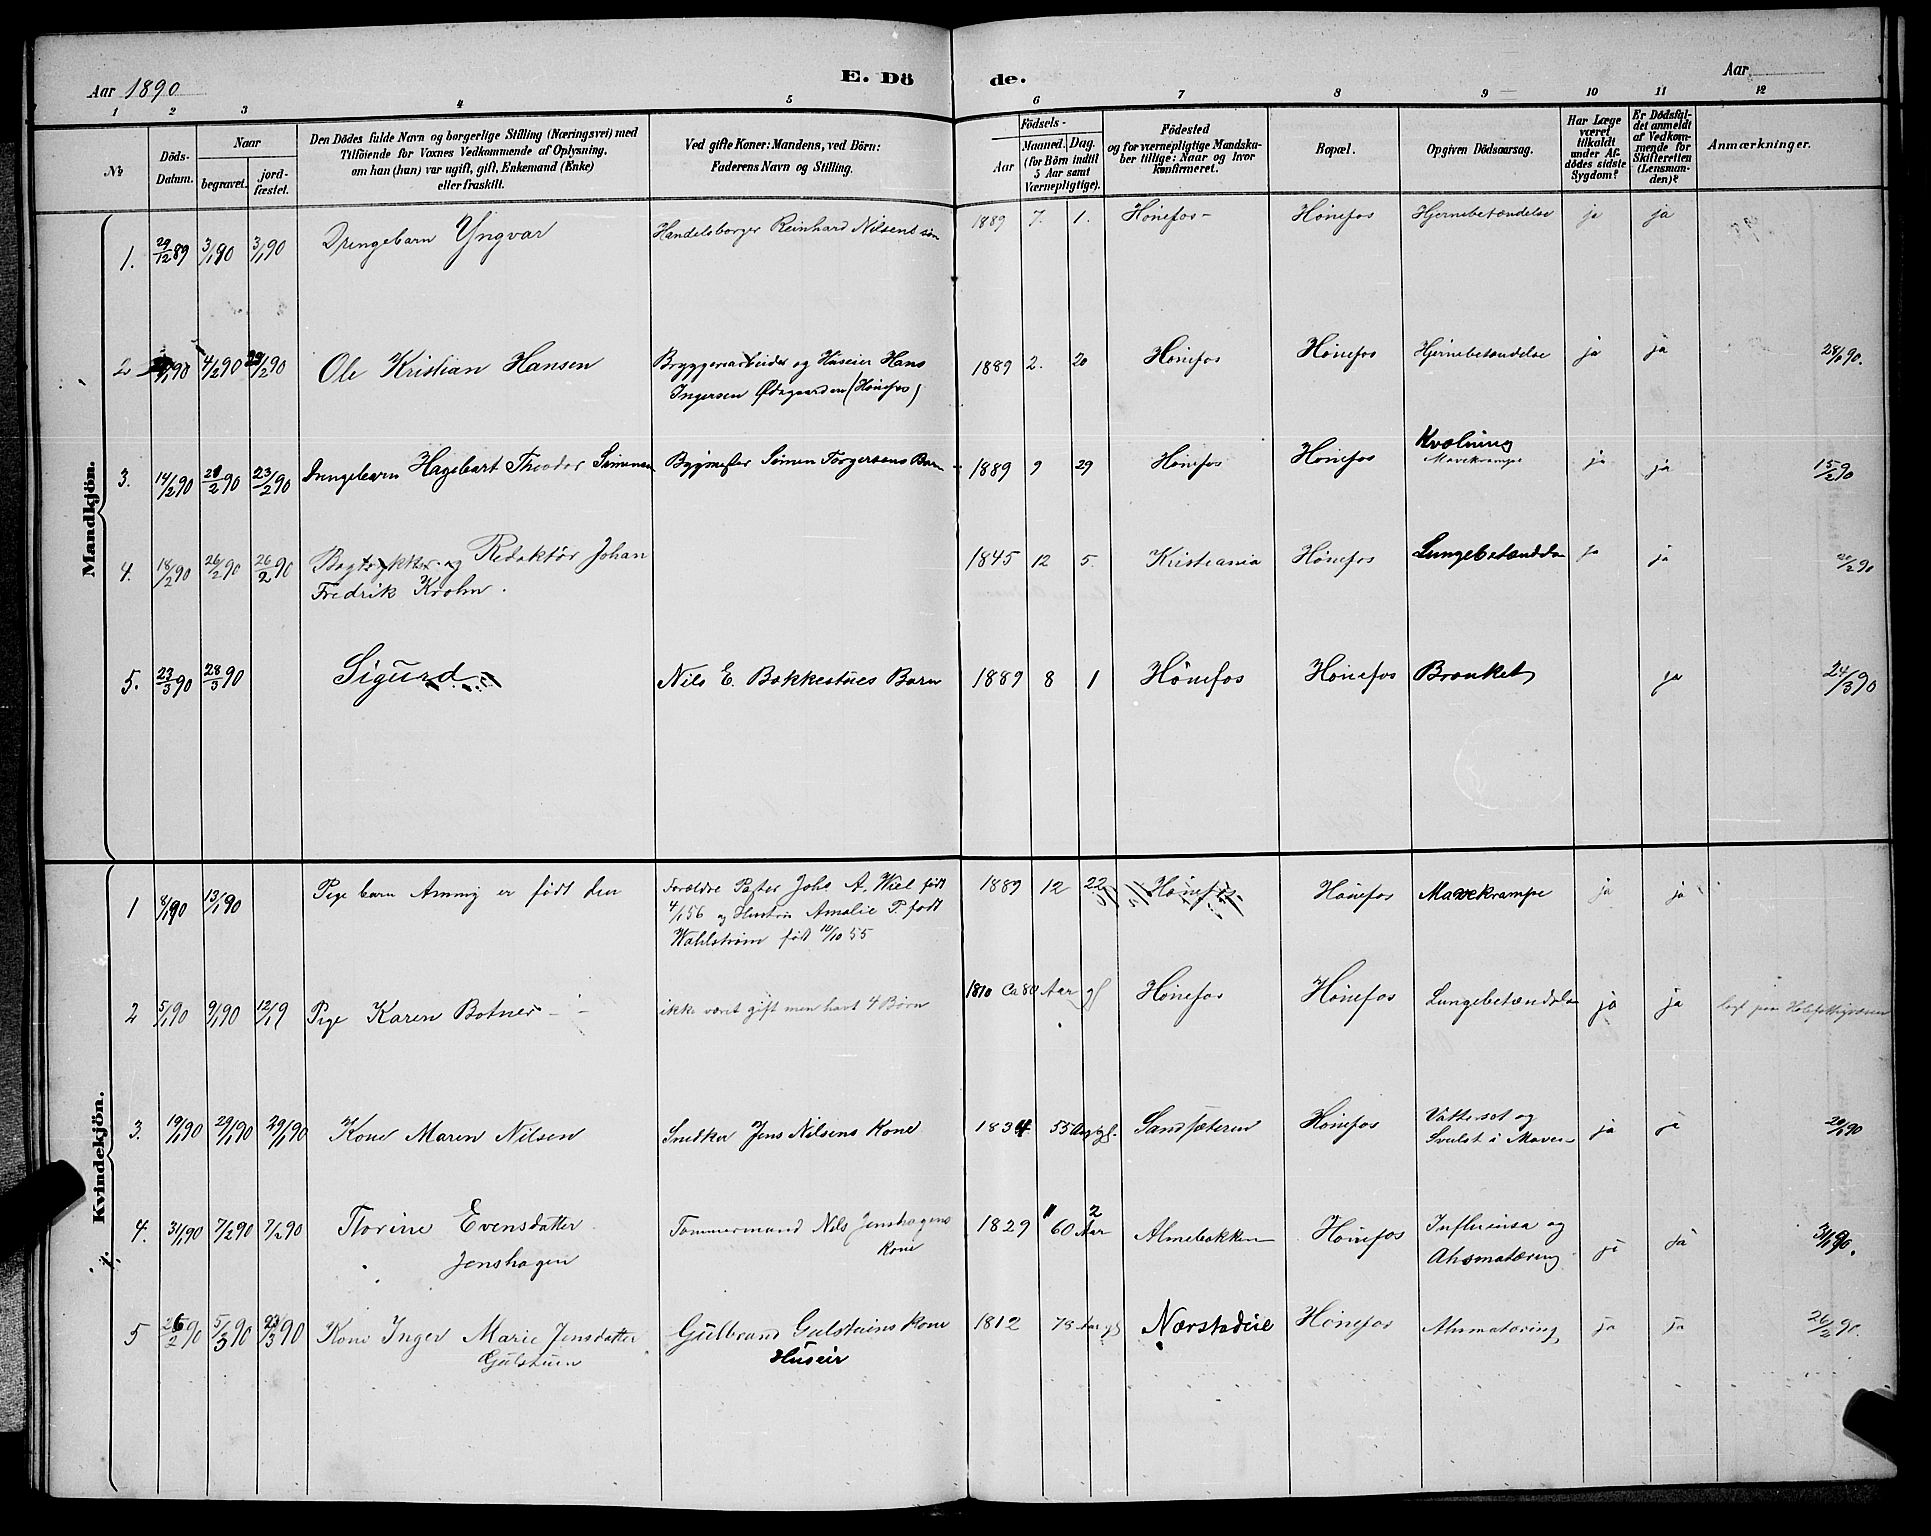 Aar 1890 E. Dö de. Aar
1 2 3 4 5 6 7 8 9 10 11 12
№
Döds-Datum.
Naar
begravet.
jord-fæstet.
Den Dödes fulde Navn og borgerlige Stilling (Næringsvei) med
Tilföiende for Voxnes Vedkommende af Oplysning,
om han (hun) var ugift, gift, Enkemand (Enke)
eller fraskilt.
Ved gifte Koner: Mandens, ved Börn:
Faderens Navn og Stilling.
Födsels-
Aar
Maaned. Dag.
(for Börn indtil
5 Aar samt
Værnepligtige).
Födested
og for værnepligtige Mandska-
ber tillige: Naar og hvor
konfirmeret.
Bopæl.
Opgiven Dödsaarsag.
Har Læge
været
tilkaldt
under Af-
dödes sidste
Sygdom?
Er Dödsfal-
det anmeldt
af Vedkom-
mende for
Skifteretten
(Lensman-
den)?
Anmærkninger.
Mandkjön.
1. 29/12 89 3/1 90 3/1 90 Drengebarn Yngvar Handelsborger Reinhard Nilsens søn 1889 7. 1. Hønefos Hønefos Hjernebetændelse ja ja
2 90 4/2 90 23/2 90 Ole Kristian Hansen Bryggeriarbeider og Huseier Hans 1889 2. 20 Hønefos Hønefos Hjernebetændelse ja ja 28/1 90.
Ingersen Ødegaarden (Hønefos)
3. 14/2 90 21/2 90 23/2 90 Drengebarn Hagebart Theodor Simensen Bygmester Simen Torgersens Barn 1889 9 29 Hønefos Hønefos Kvælning ja ja 15/2 90
Mavekrampe
4. 18/2 90 26/2 90 26/2 90 Bogtrykker og Redaktør Johan 1845 12 5. Kristiania Hønefos Lungebetændelse ja ja 20/2 90
Fredrik Krohn.
5. 23/3 90 28/3 90 Sigurd Nils E. Bakkestues Barn 1889 8 1 Hönefos Hönefos Bronket ja 24/3 90
Kvindekjön.
1 8/1 90 13/1 90 Pige barn Ammy er født den Forældre Pastor Johs A. Wiel født 1889 12 22 Hönefos Hönefos Mavekrampe ja ja
4/1 56 og Hustru Amalie P. født
Wahlstrøm født 10/10 55
2 5/1 90 9/1 90 12/1 9 Pige Karen Botner ikke været gift men havt 4 Børn 1810 Ca 80 Aar gl Hønefos Hønefos Lungebetændelse ja ja
3. 19/1 90 29/1 90 29/1 90 Kone Maren Nilsen Snedker Jens Nilsens Kone 1834 55 Aar gl. Sandsæteren Hønefos Vattersot og ja ja 20/1 90
Svulst i Maven
4. 31/1 90 7/2 90 7/2 90 Thorine Evensdatter Tømmermand Nils Jenshagens 1829 11 2 60 Aar Almebakken Hønefos Influensa og ja ja 31/1 90.
Jenshagen Kone Alismatæring
5 26/2 90 5/3 90 23/3 90 Kone Inger Marie Jensdatter Gulbrand Gulstuens Kone 1812 78 Aar gl Nærstadeie Hønefos ja ja 26/2 90.
Gulstuen Huseier